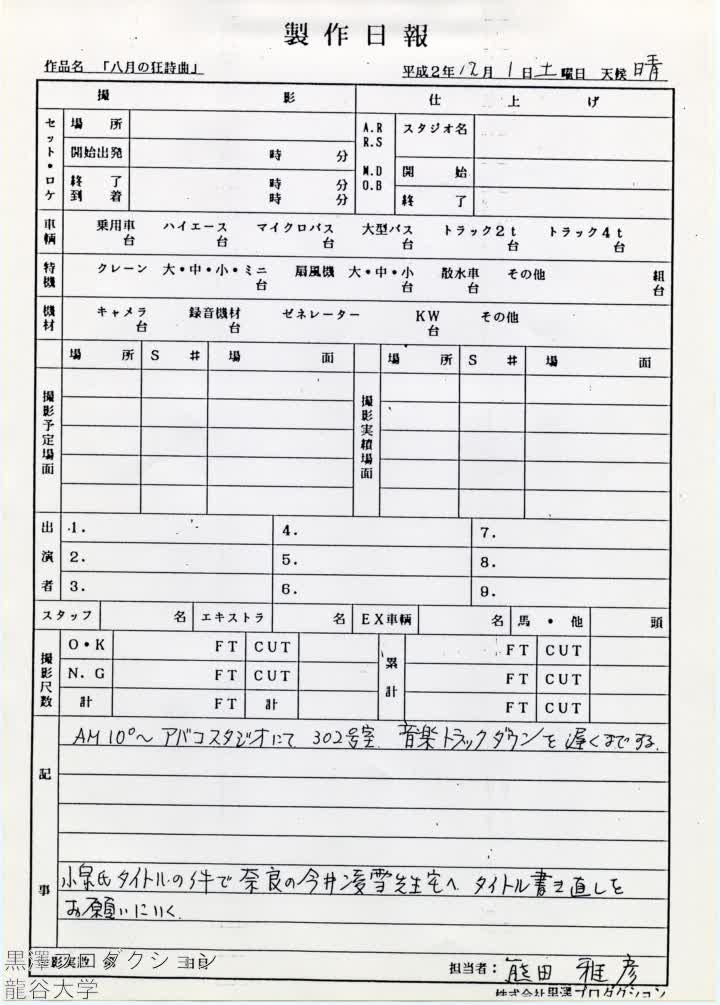 製作日報
作品名 「八月の狂詩曲」 平成2年12月1日土曜日 天候 晴
撮影 仕上げ
セット・ロケ 場所 A.R R.S M.D O.B スタジオ名
開始出発 時 分 開始
終了 時 分 終了
到着 時 分
車輌 乗用車 台 ハイエース 台 マイクロバス 台 大型バス 台 トラック2t 台 トラック4t 台
特機 クレーン 大・中・小・ミニ 台 扇風機 大・中・小 台 散水車 台 その他 組 台
機材 キャメラ 台 録音機材 台 ゼネレーター KW 台 その他
場所 S# 場面 場所 S# 場面
撮影予定場面 撮影実績場面
出演者 1. 4. 7.
2. 5. 8.
3. 6. 9.
スタッフ 名 エキストラ 名 EX車輌 名 馬・他 頭
撮影尺数 O・K FT CUT 累計 FT CUT
N.G FT CUT FT CUT
計 FT 計 FT CUT
記事
AM10°~ アバコスタジオにて 302号室. 音楽トラックダウンを遅くまでする.
小泉氏タイトルの件で奈良の今井凌雪先生宅へ タイトル書き直しを
お願いにいく.
影実数 日目 担当者: 熊田 雅彦
株式会社黒澤プロダクション
黒澤プロダクション
龍谷大学